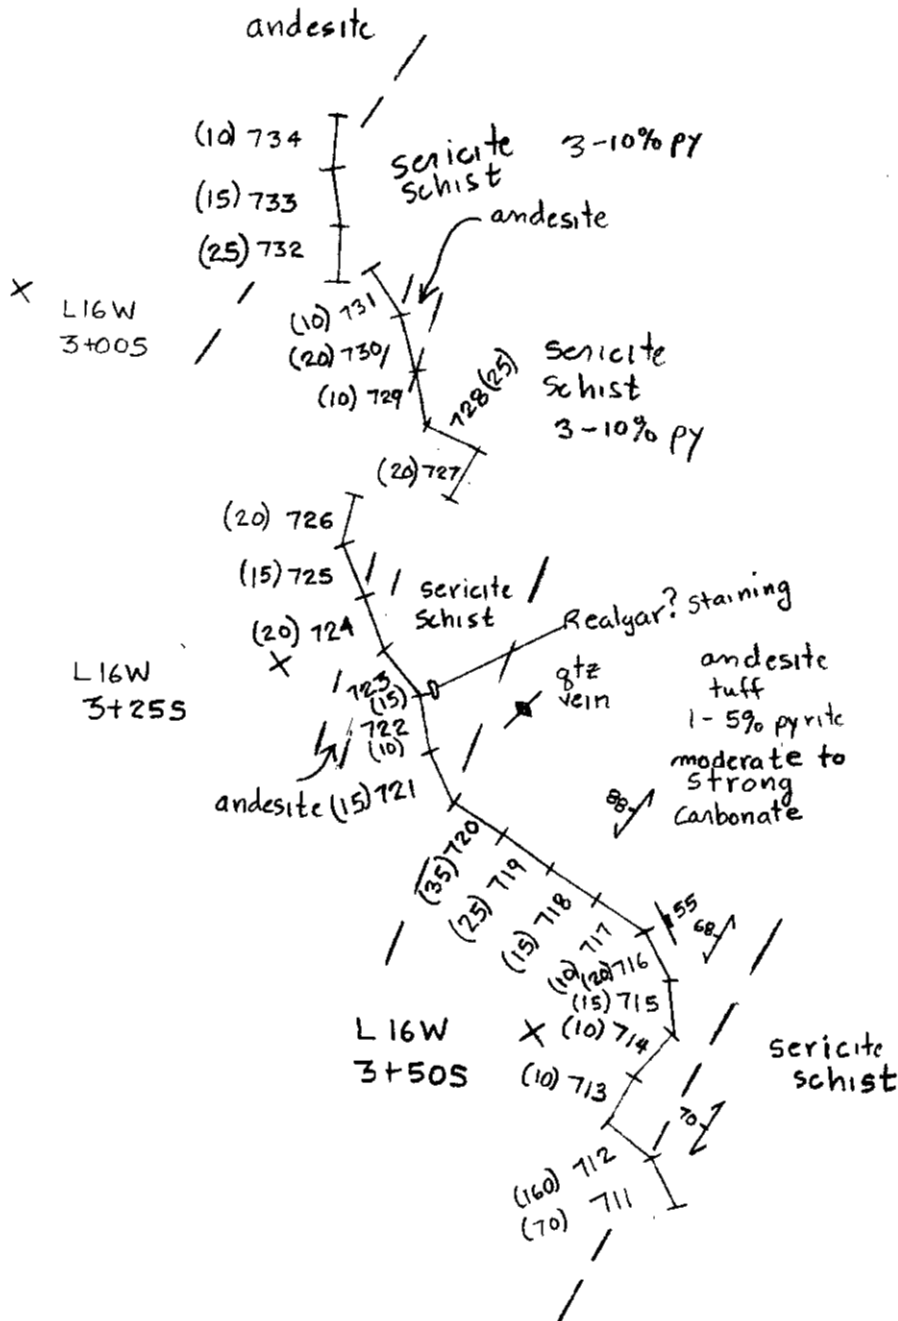 andesite
(10) 734
sericite 3-10% py
schist
(15) 733
andesite
(25) 732
L16W
3+00S
(10) 731
(20) 730
(10) 729
728 (25)
sericite
schist
3-10% py
(20) 727
(20) 726
(15) 725
sericite
schist
Realgar? staining
(20) 724
L16W
3+25S
723
(15)
722
(10)
qtz
vein
andesite
tuff
1-5% pyrite
moderate to
strong
carbonate
andesite (15) 721
88
(35) 720
(25) 719
(15) 718
(10) 717
55
68
(20) 716
(15) 715
L16W
3+50S
(10) 714
(10) 713
sericite
schist
70
(160) 712
(70) 711